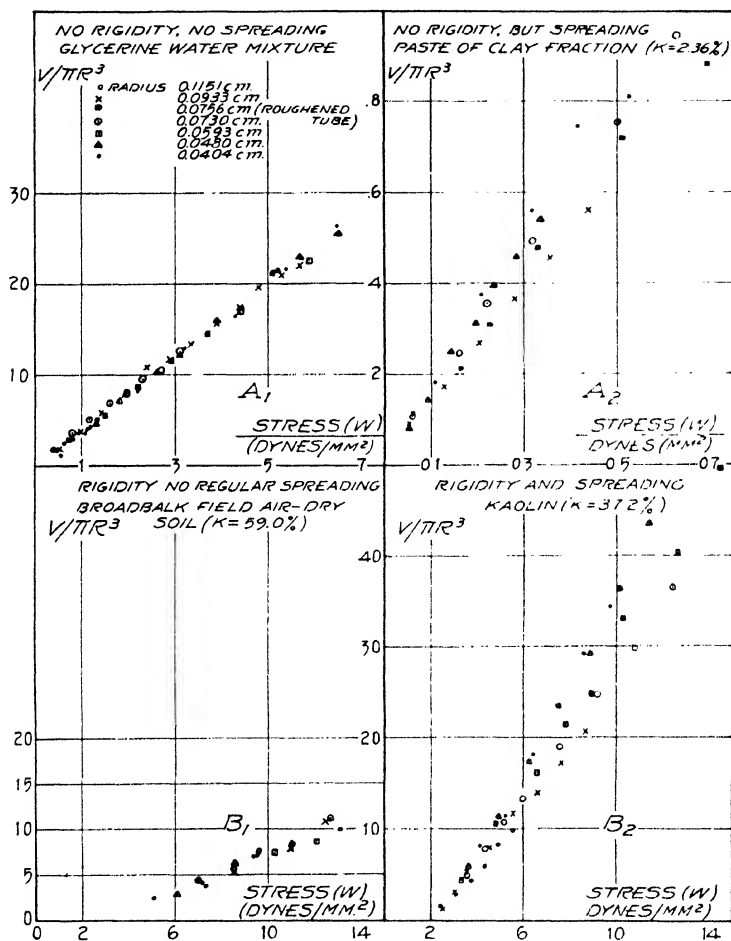 NO RIGIDITY, NO SPREADING
GLYCERINE WATER MIXTURE
V/πR³
RADIUS 0.1151 cm.
0.0933 cm.
0.0756 cm (ROUGHENED TUBE)
0.0730 cm.
0.0593 cm.
0.0480 cm.
0.0404 cm.
30
20
10
A₁
STRESS (W)
(DYNES/MM²)
1 3 5 7
NO RIGIDITY, BUT SPREADING
PASTE OF CLAY FRACTION (K=2.36%)
V/πR³
.8
.6
.4
.2
A₂
STRESS (W)
DYNES (MM²)
.01 .03 .05 .07
RIGIDITY NO REGULAR SPREADING
BROADBALK FIELD AIR-DRY
SOIL (K=59.0%)
V/πR³
20
15
10
5
0
B₁
STRESS (W)
(DYNES/MM.²)
0 2 6 10 14
RIGIDITY AND SPREADING
KAOLIN (K=37.2%)
V/πR³
40
30
20
10
B₂
STRESS (W)
DYNES/MM²)
2 6 10 14